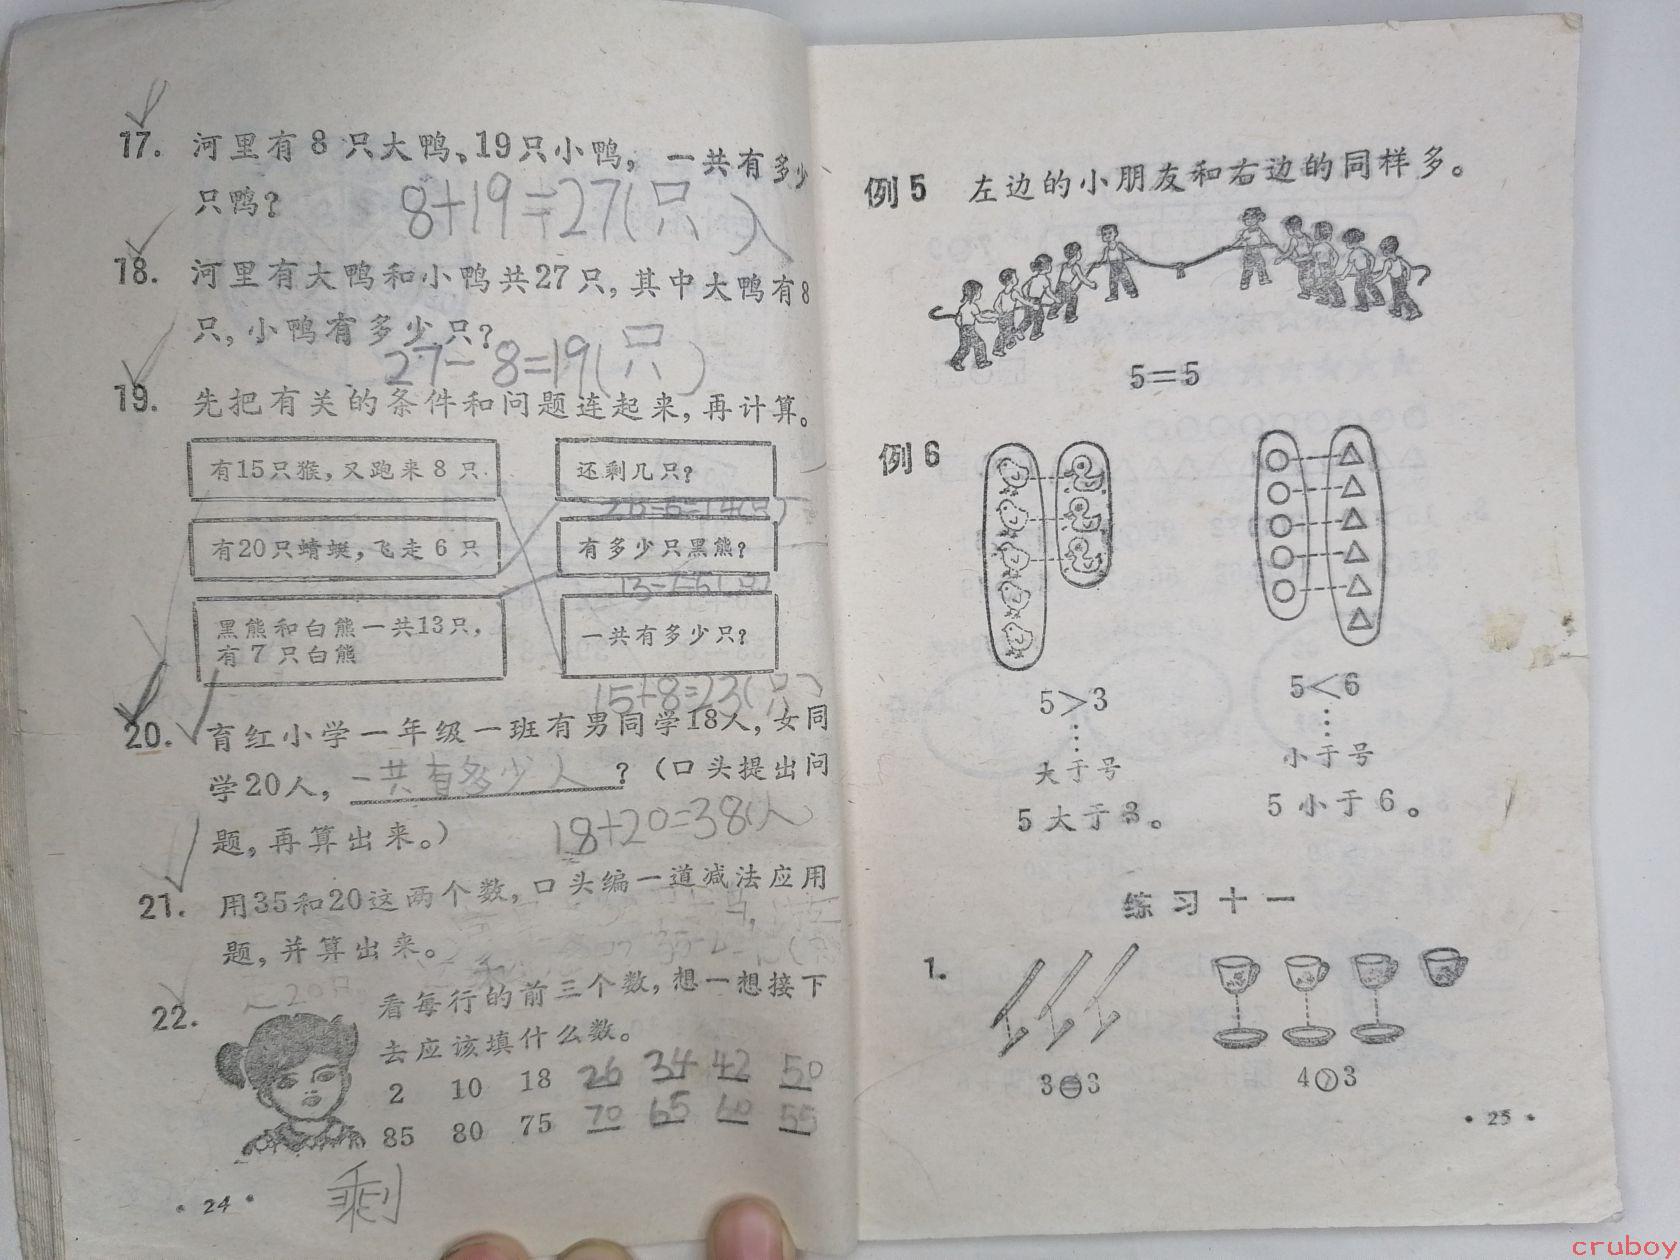 17. 河里有8只大鸭、19只小鸭，一共有多少
只鸭？
8+19=27(只)
18. 河里有大鸭和小鸭共27只，其中大鸭有8
只，小鸭有多少只？
27-8=19(只)
19. 先把有关的条件和问题连起来，再计算。
有15只猴，又跑来8只
还剩几只？
有20只蜻蜓，飞走6只
有多少只黑熊？
黑熊和白熊一共13只，
有7只白熊
一共有多少只？
15+8=23(只)
20. 育红小学一年级一班有男同学18人，女同
学20人，一共有多少人？（口头提出问
题，再算出来。）
18+20=38(人)
21. 用35和20这两个数，口头编一道减法应用
题，并算出来。
22. 看每行的前三个数，想一想接下
去应该填什么数。
2 10 18 26 34 42 50
85 80 75 70 65 60 55
剩
·24·
例5 左边的小朋友和右边的同样多。
5=5
例6
5>3
大于号
5大于3。
5<6
小于号
5小于6。
练习十一
1.
3=3
4>3
·25·
cruboy